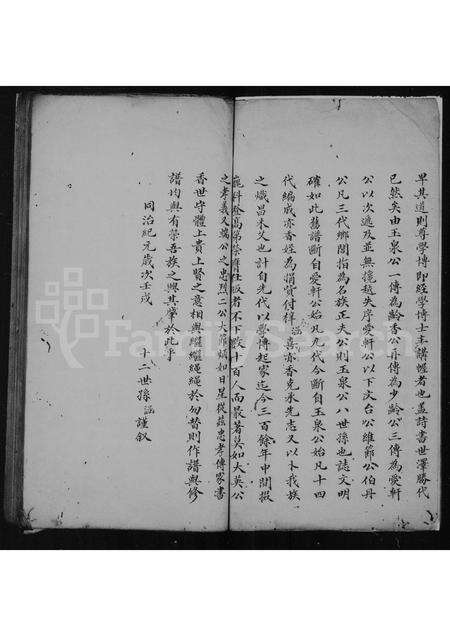 早其道則尊學博即經學博士主講幄者也蓋詩書世澤勝代
已然矣由玉泉公一傳為齡香公亦傳為少齡公三傳為愛軒
公以次遞及並無攙越失序愛軒公以下文台公維節公伯丹
公凡三代鄉閭指為名族正夫公則玉泉公八世孫也誌文明
確如此舊譜斷自愛軒公始凡九代今斷自玉泉公始凡十四
代編成亦香姓為捐資付梓謚喜亦香克承先志又以卜我族
之熾昌未艾也計自先代以學博起家迄今三百餘年中間掇
巍科登高第榮膺仕版者不下數十百人而最著莫如大英公
之孝義又公之忠烈二公大節炳如日星從茲忠孝傳家書
香世守體上貴上賢之意相與繼繼繩繩於勿替則作譜與修
譜均與有榮吾族之興其肇於此乎
同治紀元歲次壬戌
十二世孫謚謹叙
FamilySearch